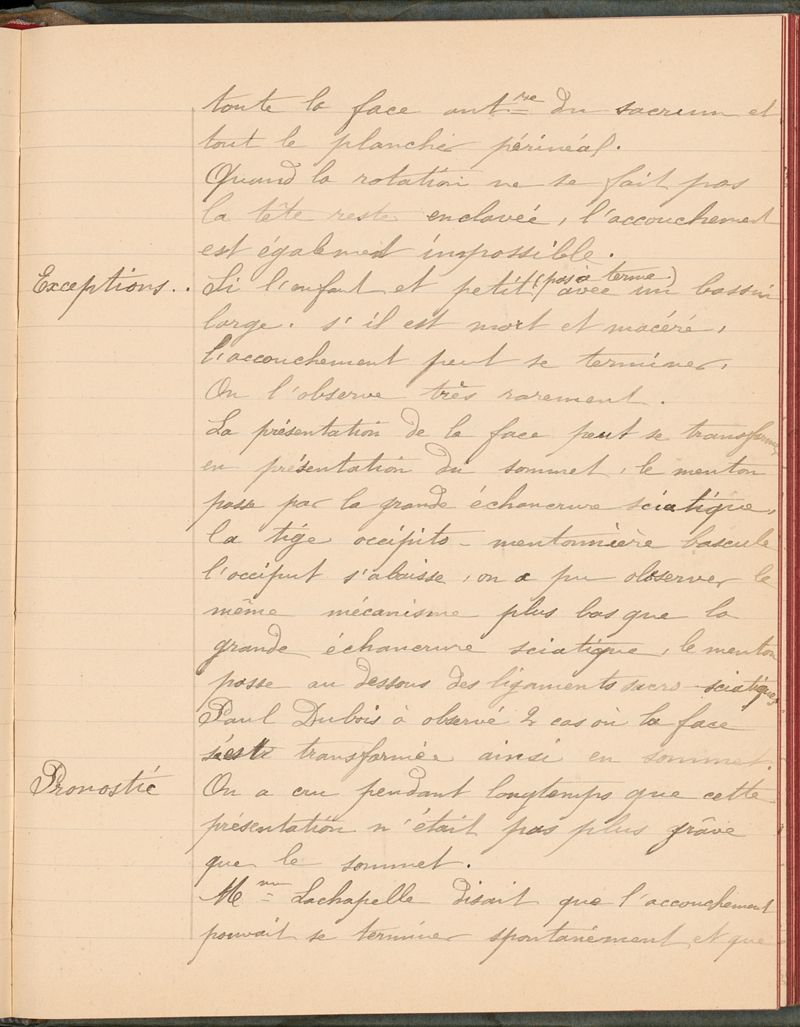 toute la face ant^re du sacrum et
tout le plancher périnéal.
Quand la rotation ne se fait pas
la tête reste enclavée, l'accouchement
est également impossible.
Exceptions.. Si l'enfant et petit (pas à terme) avec un bassin
large. s'il est mort et macéré,
l'accouchement peut se terminer,
On l'observe très rarement.
La présentation de la face peut se transformer
en présentation du sommet, le menton
passe par la grande échancrure sciatique,
la tige occipito-mentonnière bascule
l'occiput s'abaisse, on a pu observer le
même mécanisme plus bas que la
grande échancrure sciatique, le menton
passe au dessous des ligaments sacro-sciatiques
Paul Dubois à observé 2 cas où la face
s'est transformée ainsi en sommet.
Pronostic On a cru pendant longtemps que cette
présentation n'était pas plus grâve
que le sommet.
M^me Lachapelle disait que l'accouchement
pouvait se terminer spontanément et que